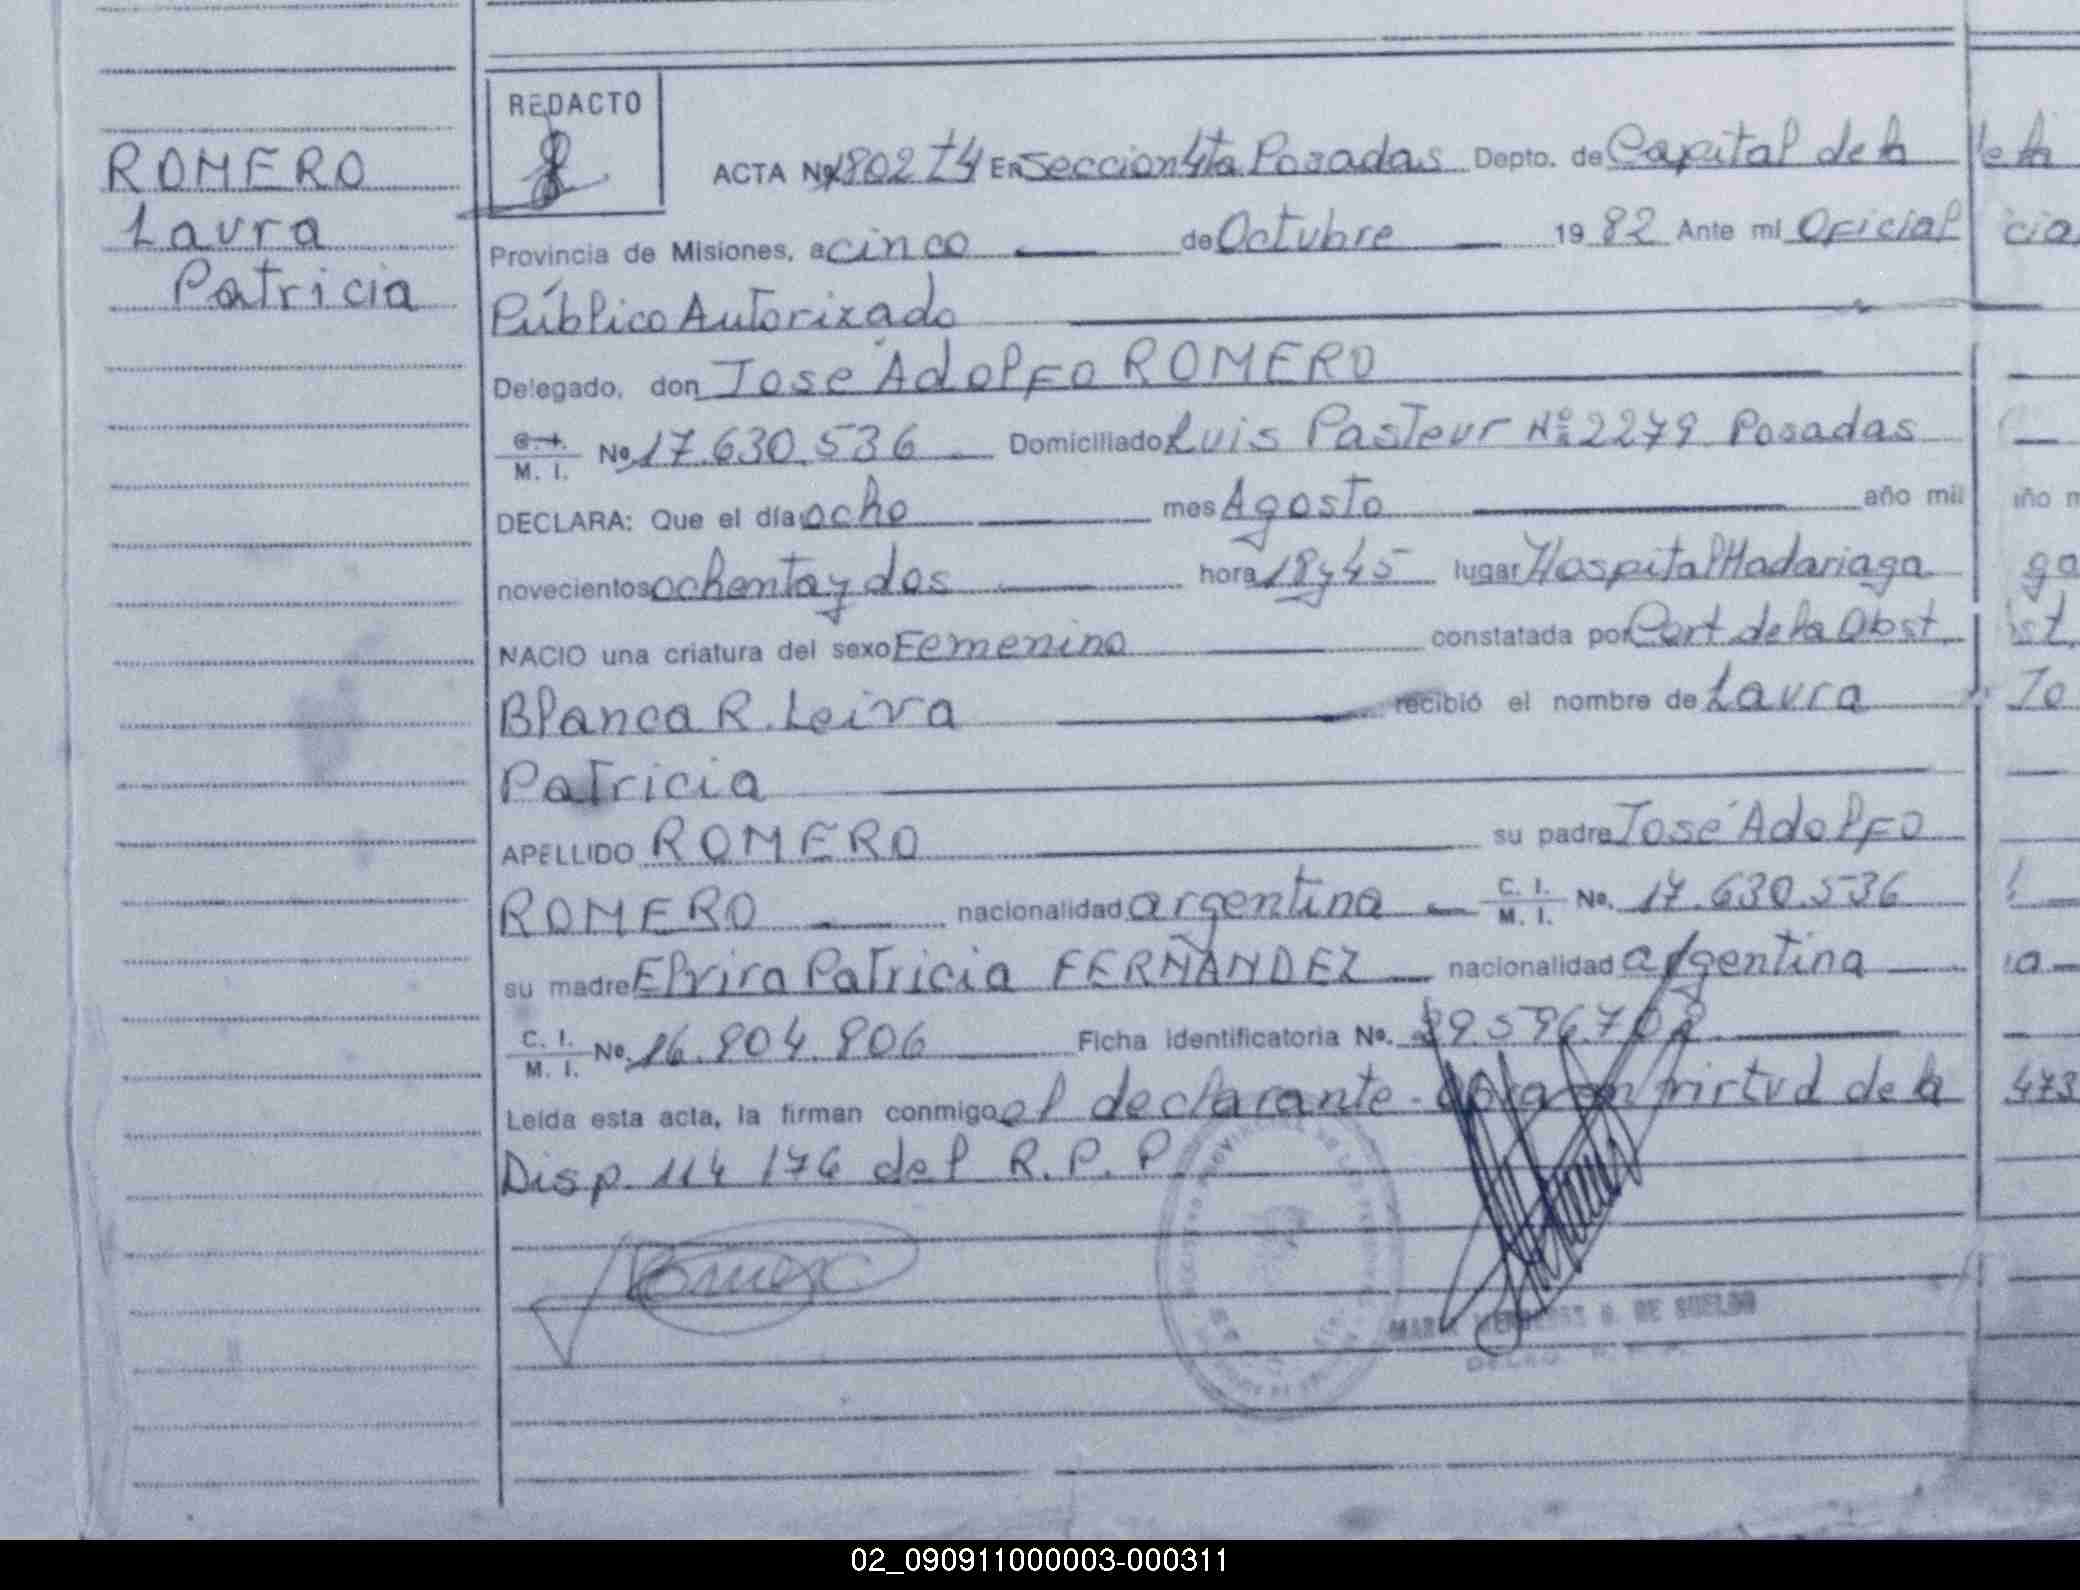 REDACTO
ROMERO
Laura
Patricia
ACTA Nº 1802 T4 En Seccion 4ta Posadas Depto. de Capital de la
Provincia de Misiones, a cinco de Octubre 19 82 Ante mi Oficial
Público Autorizado
Delegado, don José Adolfo ROMERO
C. I. M. I. No. 17.630.536 Domiciliado Luis Pasteur Nº 2279 Posadas
DECLARA: Que el día ocho mes Agosto año mil
novecientos ochenta y dos hora 18 y 45 lugar Hospital Madariaga
NACIO una criatura del sexo Femenino constatada por Cert de la Obst.
Blanca R. Leiva recibió el nombre de Laura
Patricia
APELLIDO ROMERO su padre José Adolfo
ROMERO nacionalidad argentina C. I. M. I. No. 17.630.536
su madre Elvira Patricia FERNANDEZ nacionalidad argentina
C. I. M. I. No. 16.804.806 Ficha identificatoria No.
Leída esta acta, la firman conmigo el declarante. en virtud de la
Disp. 114/76 del R.P.P.
Romero
DE SUELDO
02_090911000003-000311